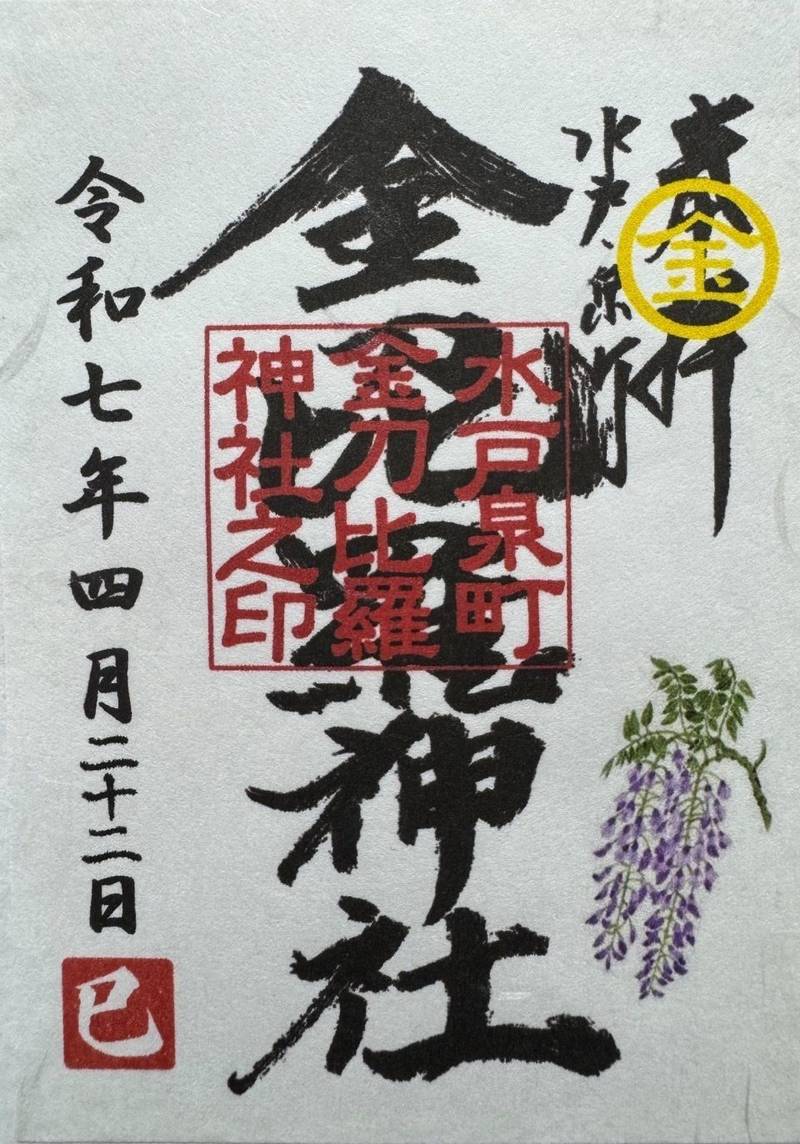 金
水戸、泉町
金刀比羅神社
水戸泉町
金刀比羅
神社之印
令和七年四月二十二日
巳